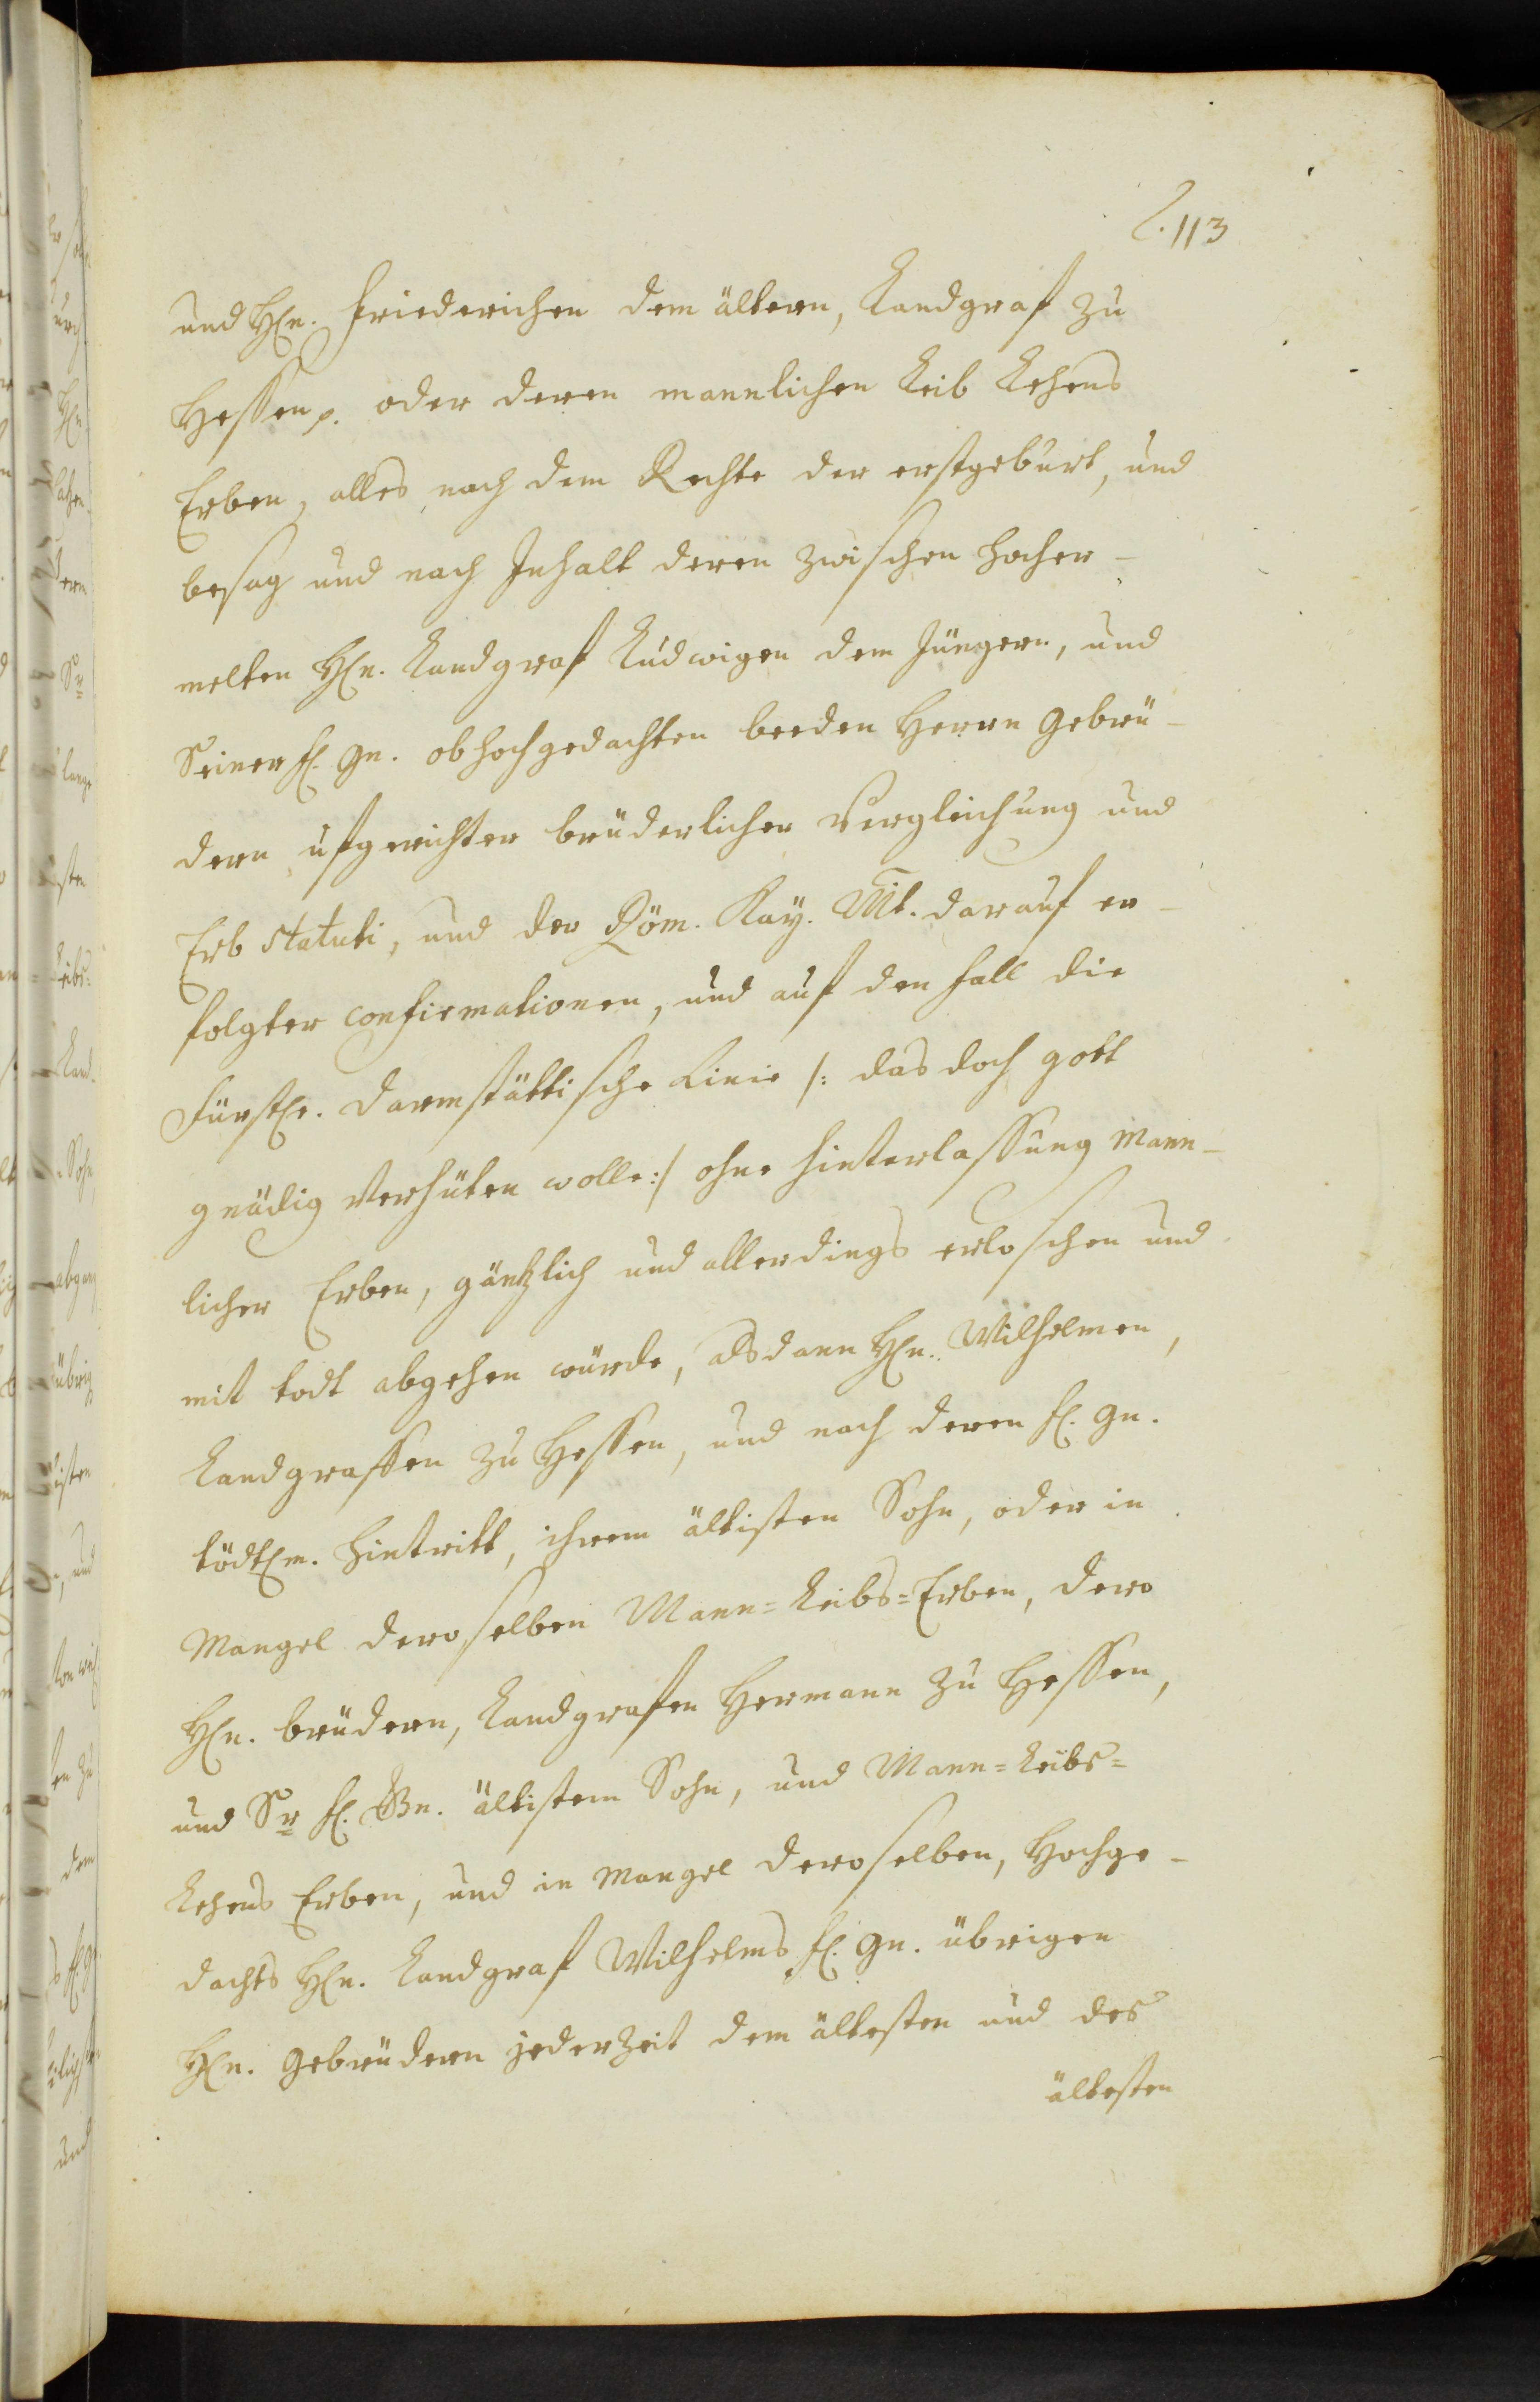 113
und Hln. Friederichen dem ältern, Landgraf zu
Hessen p. oder deren mannlichen Leib Lehens
Erben, alles nach dem Rechte der erstgeburt, und
besag und nach Inhalt deren zwischen hocher-
melten Hln. Landgraf Ludwigen dem Jüngern, und
Seiner fl. gn. obhochgedachten beeden Herrn gebrü-
dern ufgerichter brüderlicher Vergleichung und
Erb Statuti, und der Röm. Kay. Mt. darauf er-
folgter confirmationen, und auf den fall die
Fürstle. Darmstättische Linie /: das doch gott
gnädig verhüten wolle :/ ohne hinterlassung Mann-
licher Erben, gäntzlich und allerdings erloschen und
mit todt abgehen würde, alsdann Hln. Wilhelmen,
Landgraffen zu Hessen, und nach deren fl. gn.
tödtlm. hintritt, ihrem ältisten Sohn, oder in
Mangel deroselben Mann=Leibs=Erben, dero
Hln. brüdern, Landgrafen Hermann zu Hessen,
und Sr fl. Gn. ältistem Sohn, und Mann=Leibs=
Lehens Erben, und in Mangel deroselben, Hochge-
dachts Hln. Landgraf Wilhelms fl. gn. übrigen
Hln. gebrüdern jederzeit dem ältesten und des
ältesten